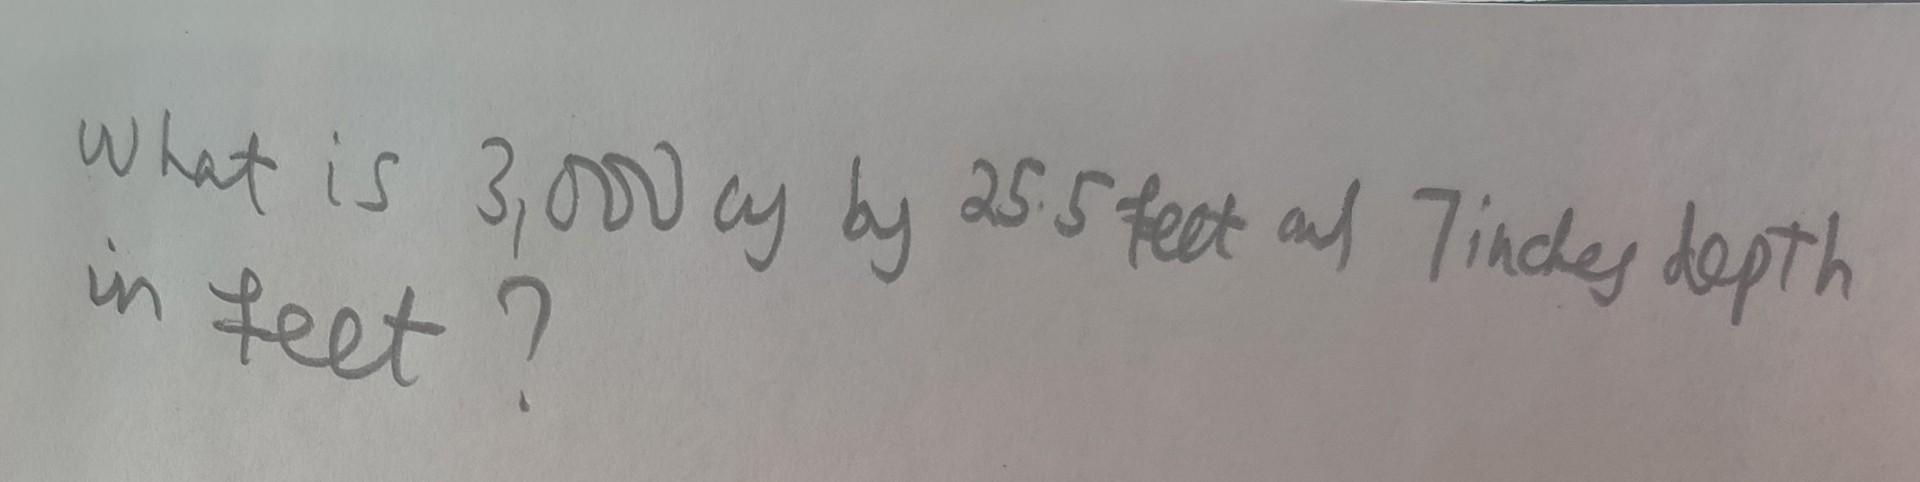 What is 3,000 cy by 25.5 feet and 7 inches depth
in feet?